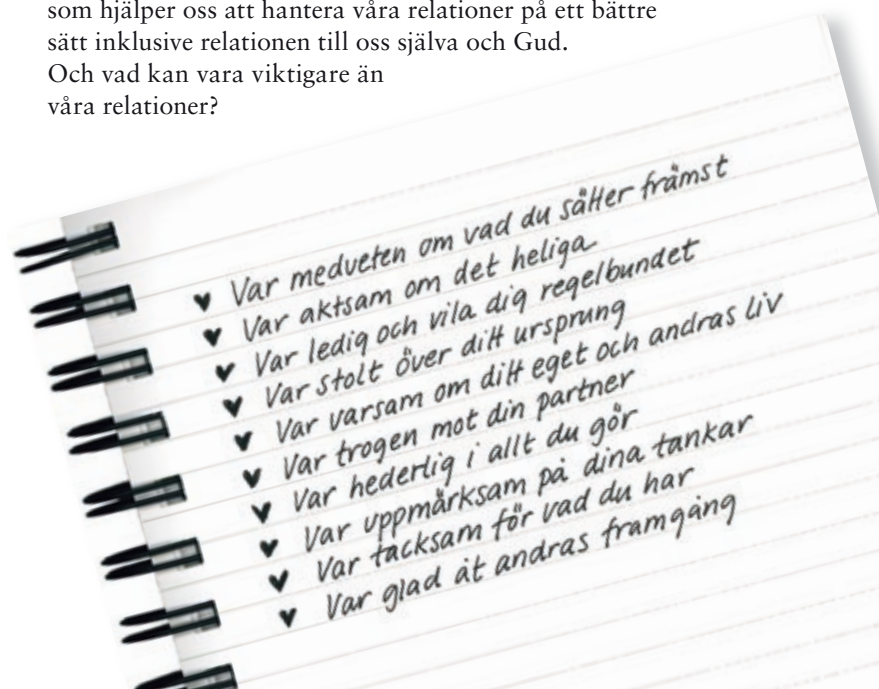 som hjälper oss att hantera våra relationer på ett bättre
sätt inklusive relationen till oss själva och Gud.
Och vad kan vara viktigare än
våra relationer?
♥ Var medveten om vad du sätter främst
♥ Var aktsam om det heliga
♥ Var ledig och vila dig regelbundet
♥ Var stolt över ditt ursprung
♥ Var varsam om ditt eget och andras liv
♥ Var trogen mot din partner
♥ Var hederlig i allt du gör
♥ Var uppmärksam på dina tankar
♥ Var tacksam för vad du har
♥ Var glad åt andras framgång